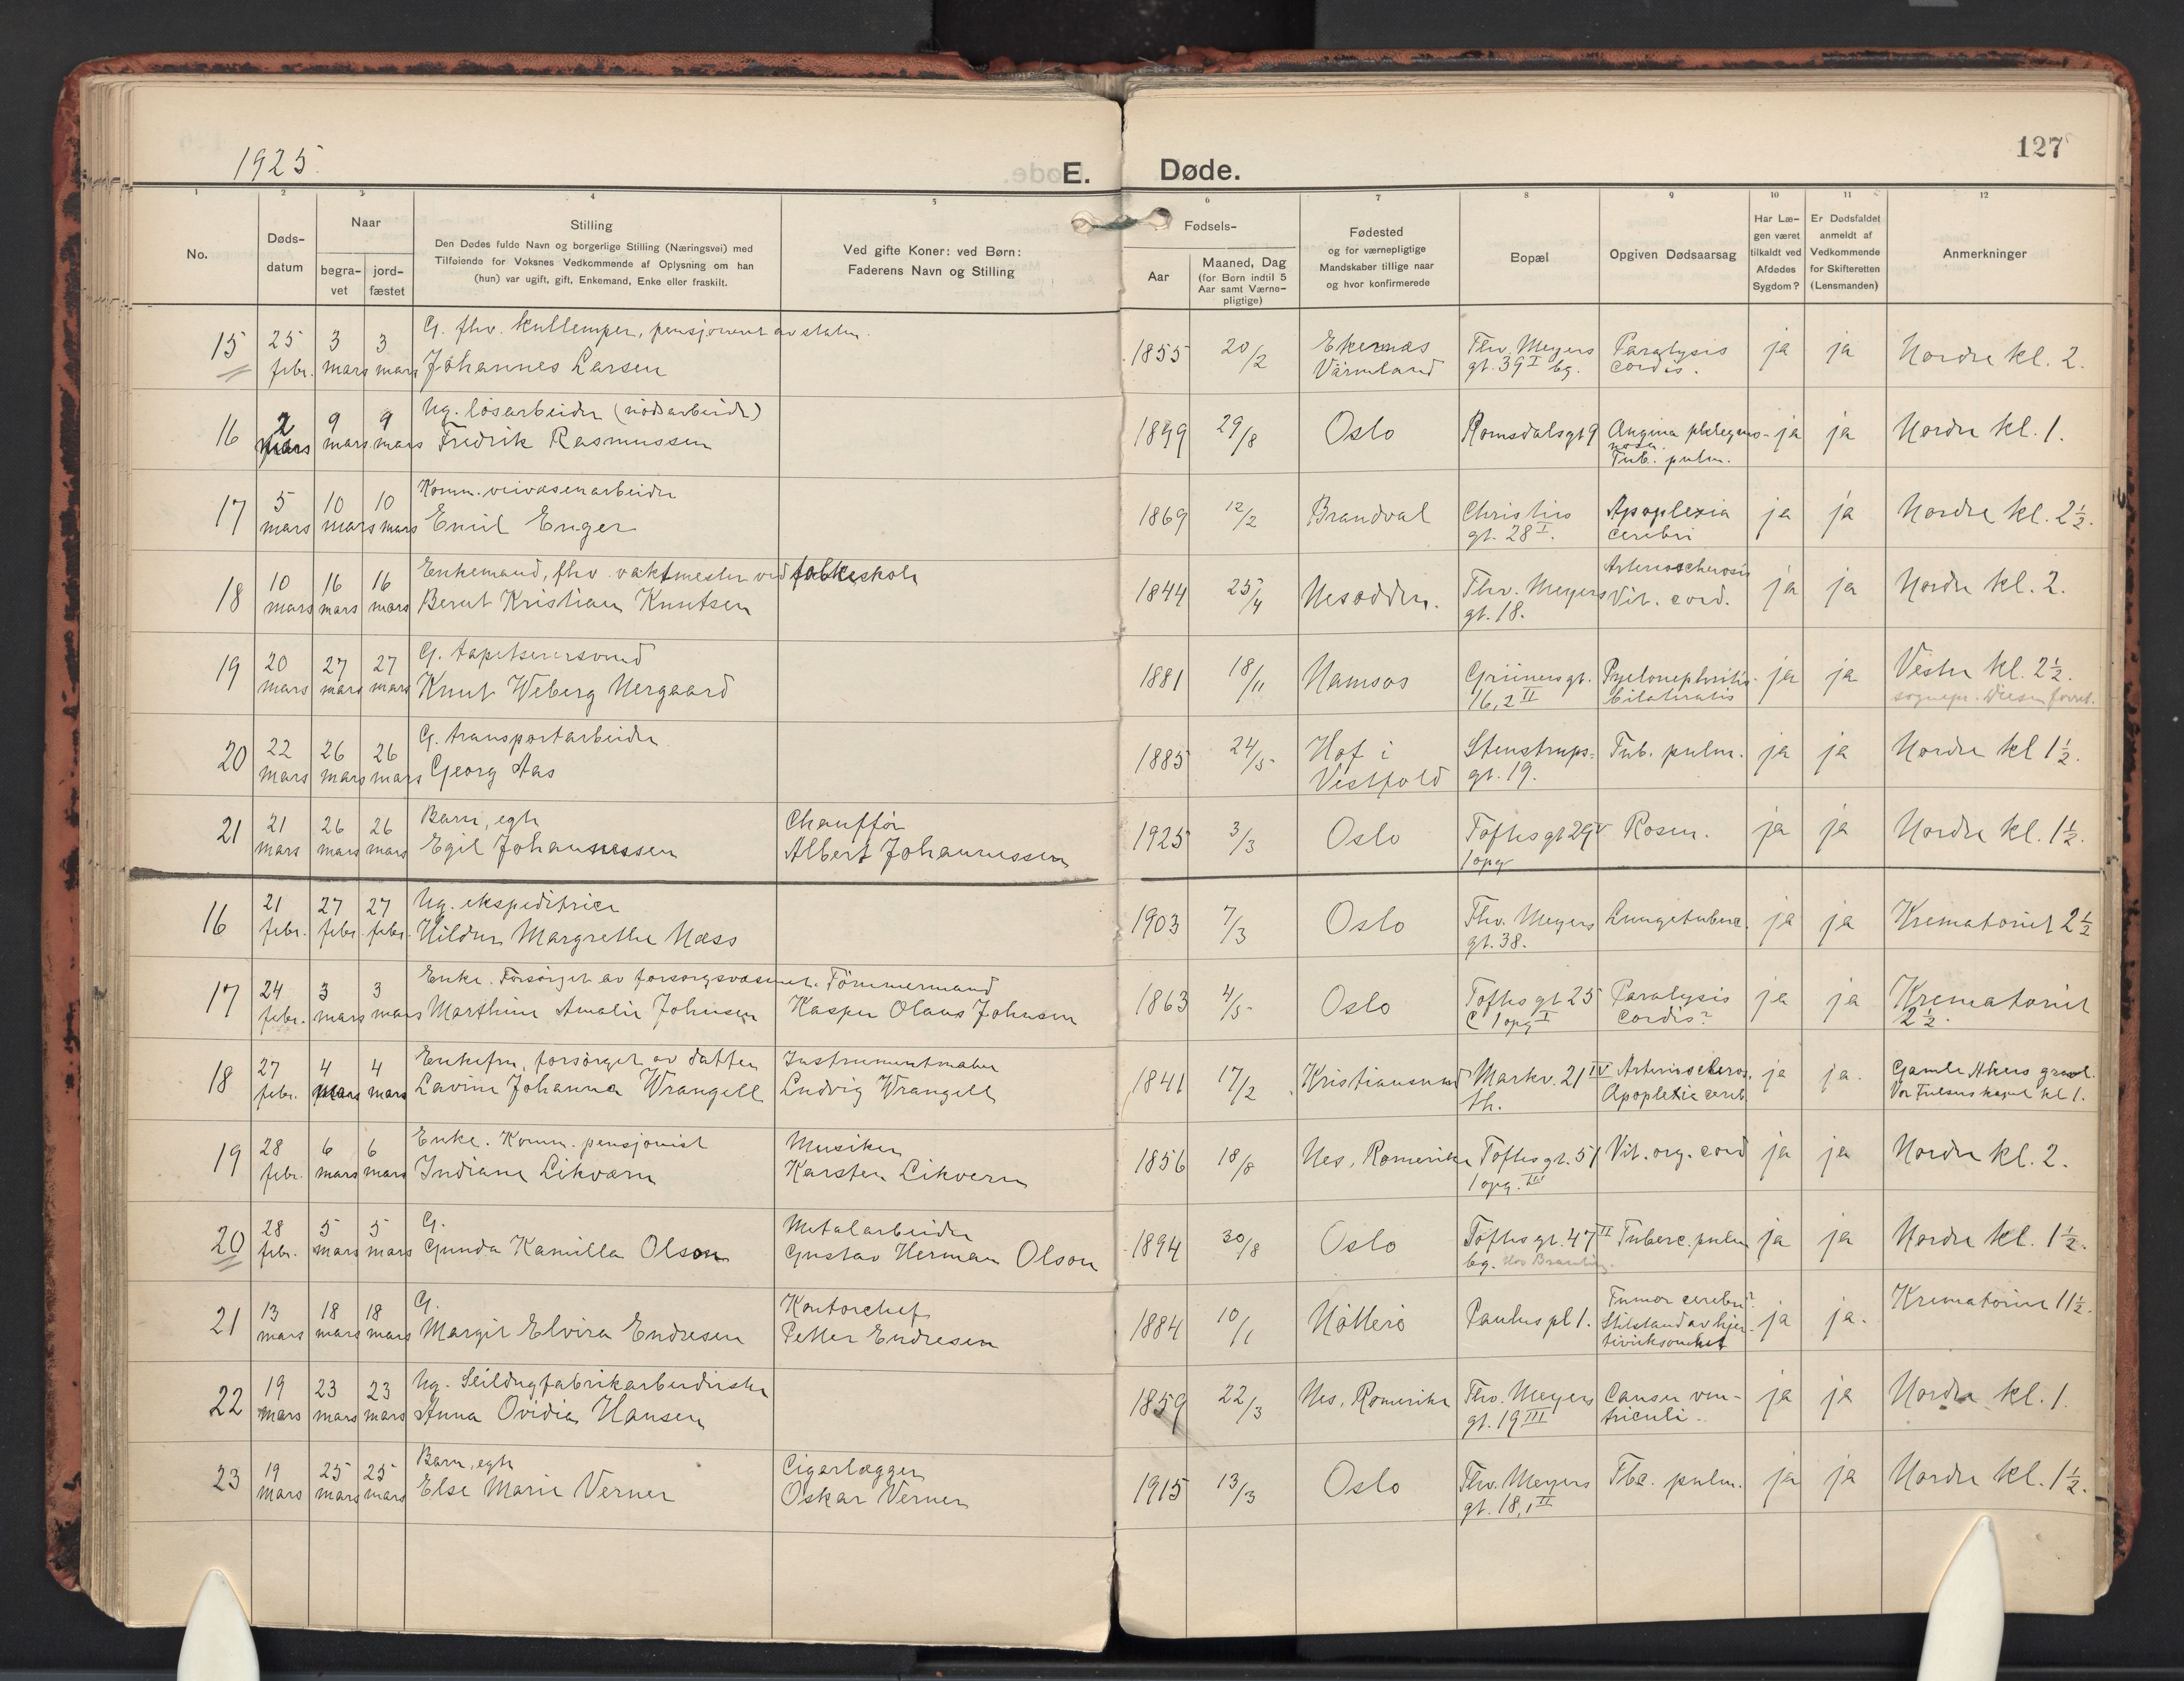 1925.
E. Døde.
127
1 2 3 4 5 6 7 8 9 10 11 12
No.
Døds-
datum
Naar
begra-
vet
jord-
fæstet
Stilling
Den Dødes fulde Navn og borgerlige Stilling (Næringsvei) med
Tilføiende for Voksnes Vedkommende af Oplysning om han
(hun) var ugift, gift, Enkemand, Enke eller fraskilt.
Ved gifte Koner: ved Børn:
Faderens Navn og Stilling
Fødsels-
Aar
Maaned, Dag
(for Børn indtil 5
Aar samt Værne-
pligtige)
Fødested
og for værnepligtige
Mandskaber tillige naar
og hvor konfirmerede
Bopæl
Opgiven Dødsaarsag
Har Læ-
gen været
tilkaldt ved
Afdødes
Sygdom?
Er Dødsfaldet
anmeldt af
Vedkommende
for Skifteretten
(Lensmanden)
Anmerkninger
15 25 febr. 3 mars 3 mars
G. fhv. kullemper, pensjonert av staten.
Johannes Larsen
1855 20/2
Ekernäs
Värmland
Thv. Meyers
gt. 39 I bg.
Paralysis
cordis.
ja ja Nordre kl. 2.
16 2 mars 9 mars 9 mars
Ug. løsarbeider (nødsarbeide)
Fredrik Rasmussen
1899 29/8 Oslo Romsdalsgt 9
Angina phlegmo-
nosa.
Tub. pulm.
ja ja Nordre kl. 1.
17 5 mars 10 mars 10 mars
Komm. veivæsenarbeider
Emil Enger
1869 12/2 Brandval
Christies
gt. 28 I.
Apoplexia
cerebri
ja ja Nordre kl. 2½.
18 10 mars 16 mars 16 mars
Enkemand, fhv. vaktmester ved folkeskole
Bernt Kristian Knutsen
1844 25/4 Nesodden.
Thv. Meyers
gt. 18.
Arterioscherosis
Vit. cord.
ja ja Nordre kl. 2.
19 20 mars 27 mars 27 mars
G. tapetserersvend
Knut Weberg Nergaard
1881 18/11 Namsos
Grünersgt.
16, 2 II
Pyelonephritis
bilateralis
ja ja Vestre kl. 2½.
sognepr. forret.
20 22 mars 26 mars 26 mars
G. transportarbeider
Georg Aas
1885 24/5
Hof i
Vestfold
Stenstrups-
gt. 19.
Tub. pulm.
ja ja Nordre kl 1½.
21 21 mars 26 mars 26 mars
Barn, egte
Egil Johannessen
Chauffør
Albert Johannessen
1925 3/3 Oslo
Toftesgt 29 V
1 opg
Rosen.
ja ja Nordre kl. 1½.
16 21 febr. 27 febr. 27 febr.
Ug. ekspeditrice
Hildur Margrethe Næss
1903 7/3 Oslo
Thv. Meyers
gt. 38.
Lungetuberc.
ja ja Krematoriet 2½
17 24 febr. 3 mars 3 mars
Enke. Forsørget av forsorgsvæsenet.
Marthine Amalie Johnsen
Tömmermand
Kasper Olaus Johnsen
1863 4/5 Oslo
Toftesgt 25
C 1 opg I
Paralysis
cordis?
ja ja Krematoriet
2½.
18 27 febr. 4 mars 4 mars
Enkefru, forsørget av datter
Lavine Johanna Wrangell
Instrumentmaker
Ludvig Wrangell
1841 17/2 Kristiansund
Markv. 21 IV
th.
Arterioscheros.
Apoplexie cereb
ja ja.
Gamle Akers gravl.
Vor Frelsers kapel kl 1.
19 28 febr. 6 mars 6 mars
Enke. Komm. pensjonist
Indiane Likvern
Musiker
Karsten Likvern
1856 18/8 Nes, Romerike
Toftesgt. 51
1 opg. III
Vit. org. cord
ja ja Nordre kl. 2.
20 28 febr. 5 mars 5 mars
G.
Gunda Kamilla Olson
Metalarbeider
Gustav Herman Olson
1894 30/8 Oslo
Toftesgt. 47 II
bg.
Tuberc. pulm
ja ja Nordre kl. 1½.
21 13 mars 18 mars 18 mars
G.
Margit Elvira Endresen
Kontorchef
Petter Endresen
1884 10/1 Nötterö Paulus pl 1.
Tumor cerebri?
Stilstand av hjer-
tevirksomhet
ja ja. Krematoriet 11½.
22 19 mars 23 mars 23 mars
Ug. Seildugfabrikarbeiderske
Anna Ovidia Hansen
1859 22/3 Nes, Romerike
Thv. Meyers
gt. 19 III
Cancer ven-
triculi.
ja ja Nordre kl. 1.
23 19 mars 25 mars 25 mars
Barn, egte
Else Marie Verner
Cigarlægger
Oskar Verner
1915 13/3 Oslo
Thv. Meyers
gt. 18, 1 II
Tbc. pulm.
ja ja Nordre kl. 1½.